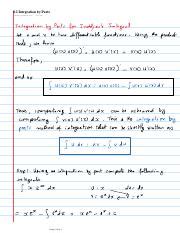 Integration by Parts
Integration by Parts for Indefinite Integral
Let u and v be two differentiable functions. Using the product
rule, we have
(u(x) v(x))' = u'(x) v(x) + u(x) v'(x)
Therefore,
u(x) v'(x) = (u(x) v(x))' - u'(x) v(x)
and so
∫ u(x) v'(x) dx = u(x) v(x) - ∫ v(x) u'(x) dx
Thus, computing ∫ u(x) v'(x) dx can be achieved by
computing ∫ v(x) u'(x) dx. This is the integration by
parts method of integration that can be
∫ u dv = uv - ∫ v du
Using integration by parts compute the following
integrals
∫ x e^x dx
u = x
du = dx
= x e^x - ∫ e^x dx = x e^x - e^x + c